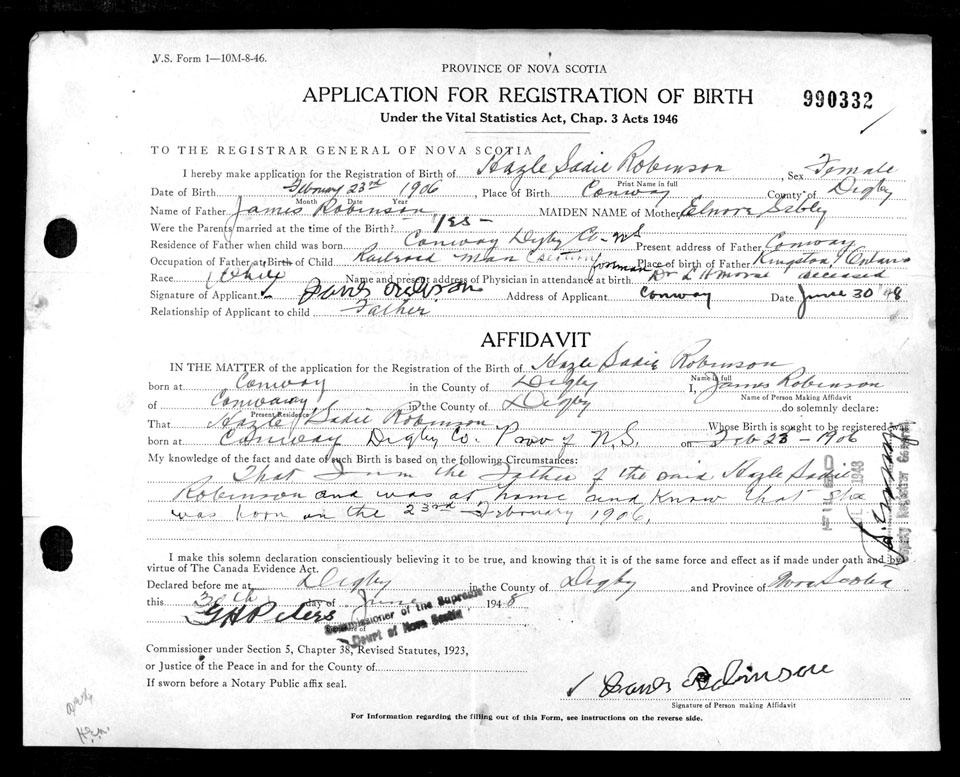 V.S. Form 1—10M-8-46.
PROVINCE OF NOVA SCOTIA
APPLICATION FOR REGISTRATION OF BIRTH 990332
Under the Vital Statistics Act, Chap. 3 Acts 1946
TO THE REGISTRAR GENERAL OF NOVA SCOTIA
I hereby make application for the Registration of Birth of Hazle Sadie Robinson, Sex Female
Print Name in full
Date of Birth February 23rd 1906, Place of Birth Conway, County of Digby
Month Date Year
Name of Father James Robinson MAIDEN NAME of Mother Elnore Sibley
Were the Parents married at the time of the Birth? Yes -
Residence of Father when child was born Conway Digby Co- NS Present address of Father Conway
Occupation of Father at Birth of Child Railroad man (section foreman Place of birth of Father Kingston, Ontario
Race White Name and present address of Physician in attendance at birth Dr L H Morse deceased
Signature of Applicant James Robinson Address of Applicant Conway Date June 30 '48
Relationship of Applicant to child Father
AFFIDAVIT
IN THE MATTER of the application for the Registration of the Birth of Hazle Sadie Robinson
Name in full
born at Conway in the County of Digby I, James Robinson
Name of Person Making Affidavit
of Conway in the County of Digby do solemnly declare:
Present Residence
That Hazle Sadie Robinson Whose Birth is sought to be registered was
born at Conway Digby Co. Prov of N.S. on Feb 23 - 1906
My knowledge of the fact and date of such Birth is based on the following Circumstances:
That I am the Father of the said Hazle Sadie
Robinson and was at home and know that she
was born on the 23rd February 1906.
I make this solemn declaration conscientiously believing it to be true, and knowing that it is of the same force and effect as if made under oath and by
virtue of The Canada Evidence Act.
Declared before me at Digby in the County of Digby and Province of Nova Scotia
this 30th day of June 1948
G H Peters
Commissioner of the Supreme
Court of Nova Scotia
Commissioner under Section 5, Chapter 38, Revised Statutes, 1923,
or Justice of the Peace in and for the County of
If sworn before a Notary Public affix seal.
James Robinson
Signature of Person making Affidavit
For Information regarding the filling out of this Form, see instructions on the reverse side.
Deputy Registrar General